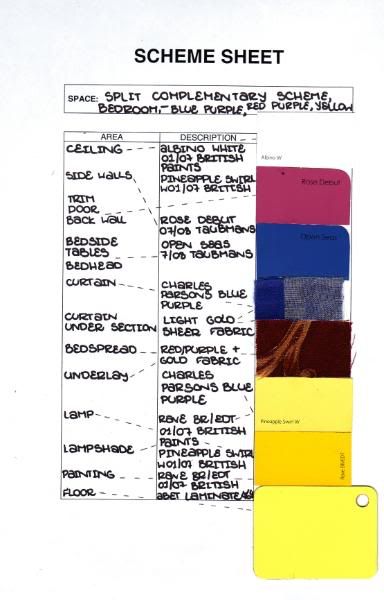 SCHEME SHEET
SPACE: SPLIT COMPLEMENTARY SCHEME,
BEDROOM,- BLUE PURPLE, RED PURPLE, YELLOW
AREA DESCRIPTION
CEILING ALBINO WHITE
01/07 BRITISH
PAINTS
Albino W
SIDE WALLS PINEAPPLE SWIRL
W01/07 BRITISH
Rose Debut
TRIM
DOOR
BACK WALL ROSE DEBUT
07/08 TAUBMANS
Open Seas
BEDSIDE OPEN SEAS
TABLES 7/08 TAUBMANS
BEDHEAD
CURTAIN CHARLES
PARSONS BLUE
PURPLE
CURTAIN LIGHT GOLD
UNDER SECTION SHEER FABRIC
BEDSPREAD RED/PURPLE +
GOLD FABRIC
UNDERLAY CHARLES
PARSONS BLUE
PURPLE
LAMP RAVE BR/EDT
01/07 BRITISH
PAINTS
Pineapple Swirl W
LAMPSHADE PINEAPPLE SWIRL
W01/07 BRITISH
PAINTING RAVE BR/EDT
01/07 BRITISH
FLOOR ABET LAMINATE